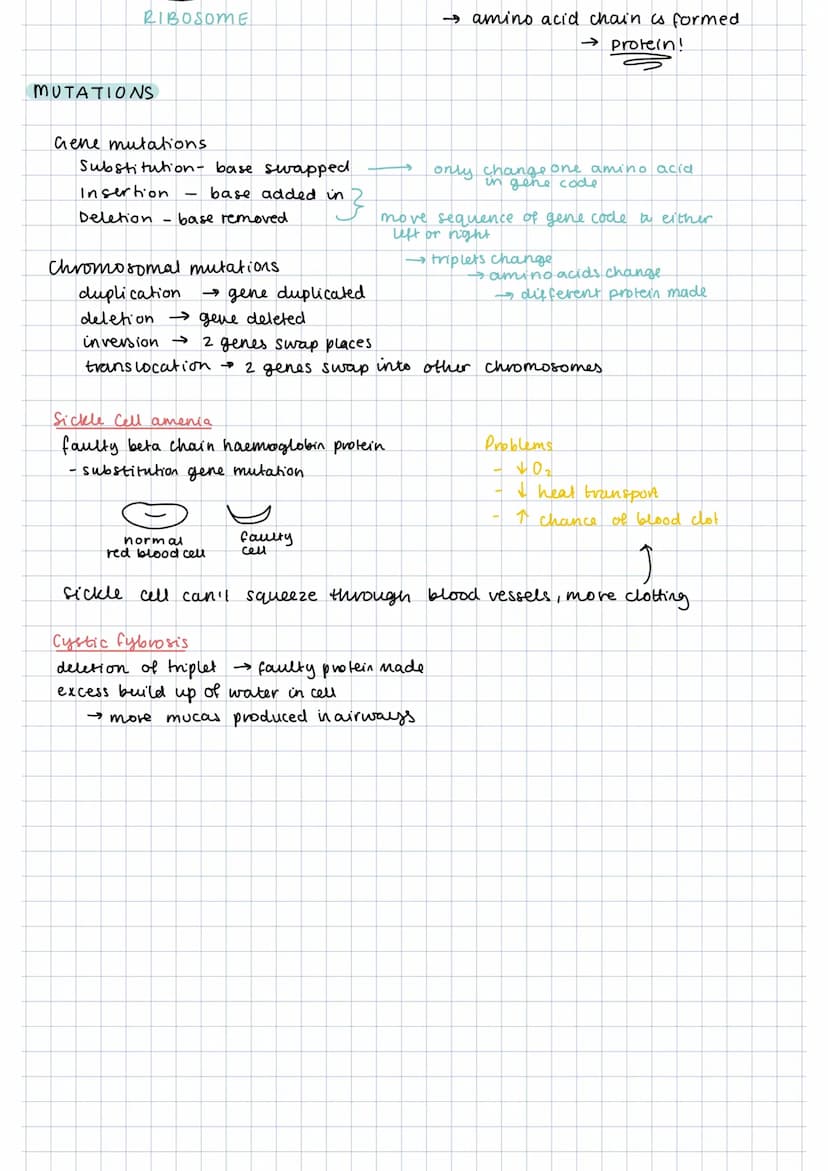 RIBOSOME
→ amino acid chain is formed
→ protein!
MUTATIONS
Gene mutations
Substitution - base swapped → only change one amino acid
in gene code
Insertion - base added in
Deletion - base removed
move sequence of gene code to either
left or right
→ triplets change
→ amino acids change
→ different protein made
Chromosomal mutations
duplication → gene duplicated
deletion → gene deleted
inversion → 2 genes swap places
translocation → 2 genes swap into other chromosomes
Sickle Cell amenia
faulty beta chain haemoglobin protein
- substitution gene mutation
normal
red blood cell
faulty
cell
Problems
- ↓ O2
- ↓ heat transport
- ↑ chance of blood clot
Sickle cell can't squeeze through blood vessels, more clotting
Cystic fybrosis
deletion of triplet → faulty protein made
excess build up of water in cell
→ more mucas produced in airways